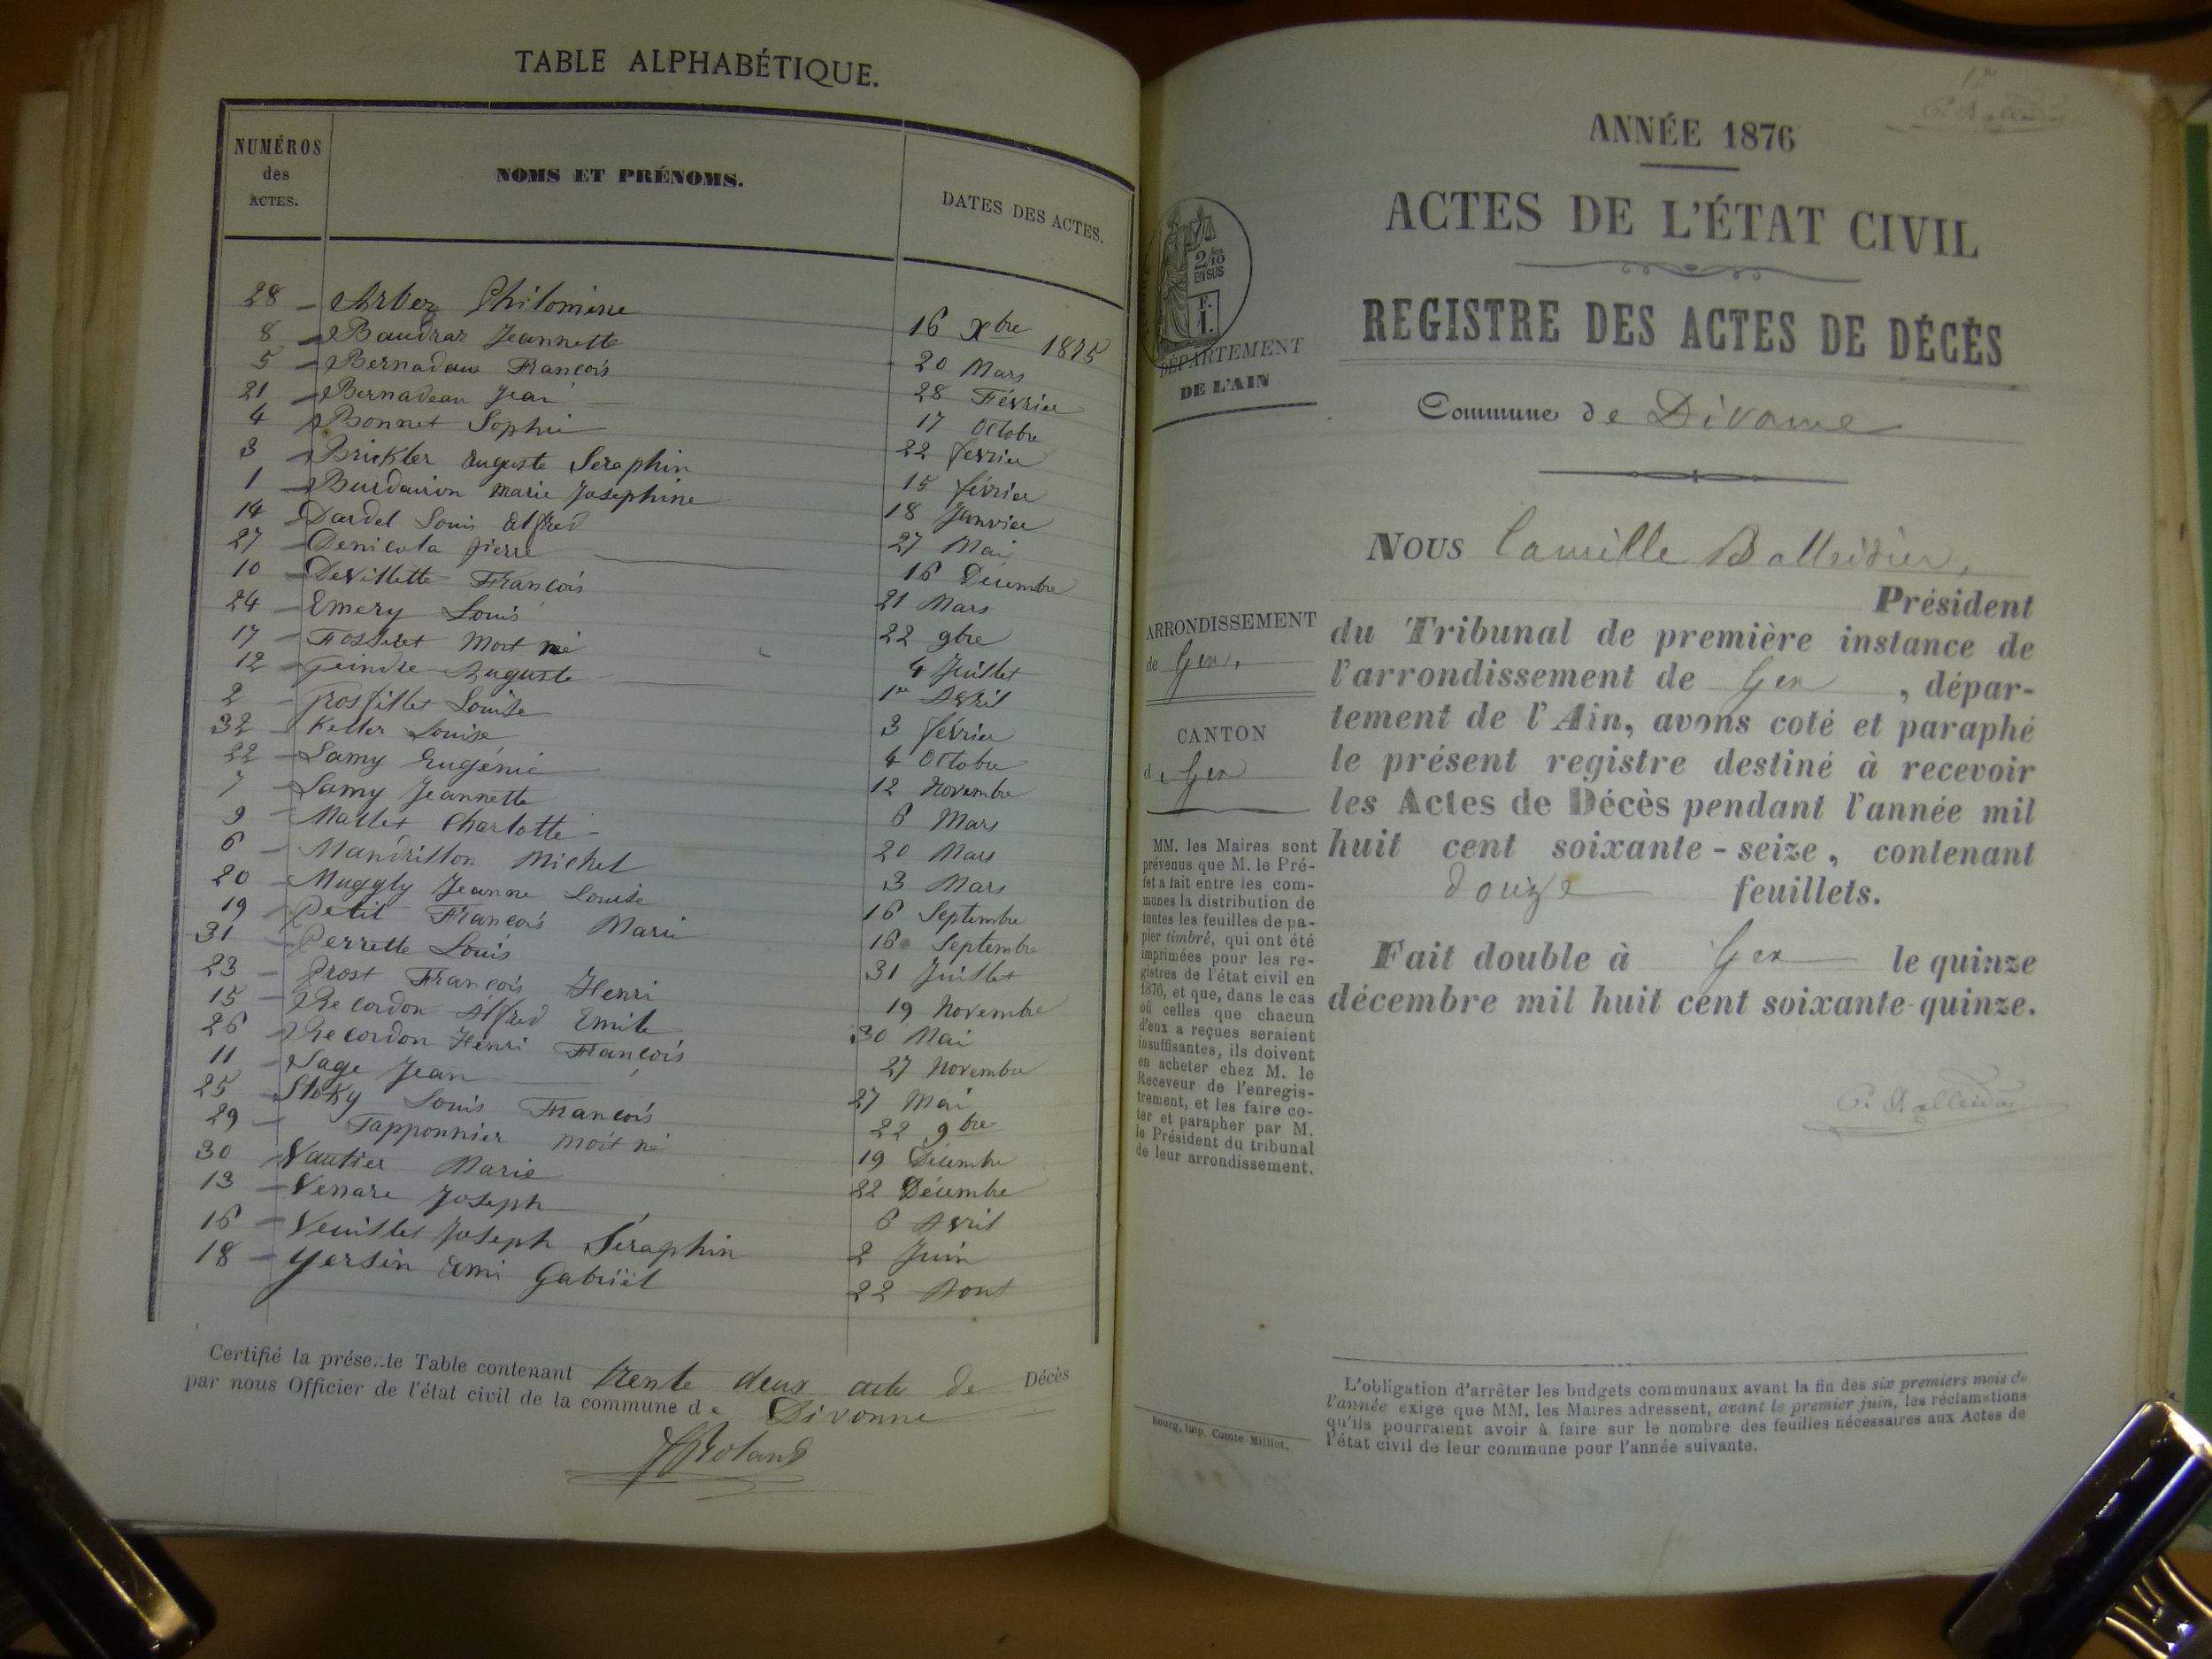 TABLE ALPHABÉTIQUE.
NUMÉROS des ACTES.
NOMS ET PRÉNOMS.
DATES DES ACTES.
28 - Arbez Philomène 16 Xbre 1875
8 - Baudraz Jeannette 20 Mars
5 - Bernadaux François 28 Février
21 - Bernadeau Jean 17 Octobre
4 - Bonnet Sophie 22 février
3 - Brickler Auguste Séraphin 15 février
1 - Burdairon Marie Josephine 18 Janvier
14 - Dardel Louis Alfred 27 Mai
27 - Denicola Pierre 16 Décembre
10 - Devillette François 21 Mars
24 - Emery Louis 22 9bre
17 - Fosseret Mort né 4 Juillet
12 - Geindre Auguste 1er Avril
2 - Grosfillet Louise 3 février
32 - Keller Louise 4 Octobre
22 - Lamy Eugénie 12 Novembre
7 - Lamy Jeannette 6 Mars
9 - Mallet Charlotte 20 Mars
6 - Mandrillon Michel 3 Mars
20 - Muggly Jeanne Louise 16 Septembre
19 - Petit François Marie 16 Septembre
31 - Perrette Louis 31 Juillet
23 - Prost François Henri 19 Novembre
15 - Recordon Alfred Emile 30 Mai
26 - Recordon Henri François 27 Novembre
11 - Sage Jean 27 Mai
25 - Stoky Louis François 22 9bre
29 - Tapponnier mort né 19 Décembre
30 - Vautier Marie 22 Décembre
13 - Venare Joseph 6 Avril
16 - Veuillet Joseph Séraphin 2 Juin
18 - Yersin Ami Gabriël 22 Aout
Certifié la présente Table contenant trente deux acte de Décès
par nous Officier de l'état civil de la commune de Divonne
Roland
ANNÉE 1876
ACTES DE L'ÉTAT CIVIL
REGISTRE DES ACTES DE DÉCÈS
Commune de Divonne
2/10
EN SUS
F.
I.
DÉPARTEMENT
DE L'AIN
ARRONDISSEMENT
de Gex,
CANTON
de Gex
MM. les Maires sont
prévenus que M. le Pré-
fet a fait entre les com-
munes la distribution de
toutes les feuilles de pa-
pier timbré, qui ont été
imprimées pour les re-
gistres de l'état civil en
1876, et que, dans le cas
où celles que chacun
d'eux a reçues seraient
insuffisantes, ils doivent
en acheter chez M. le
Receveur de l'enregis-
trement, et les faire co-
ter et parapher par M.
le Président du tribunal
de leur arrondissement.
Bourg, imp. Comte Milliet.
NOUS Camille Balleidier,
Président
du Tribunal de première instance de
l'arrondissement de Gex, dépar-
tement de l'Ain, avons coté et paraphé
le présent registre destiné à recevoir
les Actes de Décès pendant l'année mil
huit cent soixante-seize, contenant
douze feuillets.
Fait double à Gex le quinze
décembre mil huit cent soixante-quinze.
C. Balleidier
L'obligation d'arrêter les budgets communaux avant la fin des six premiers mois de
l'année exige que MM. les Maires adressent, avant le premier juin, les réclamations
qu'ils pourraient avoir à faire sur le nombre des feuilles nécessaires aux Actes de
l'état civil de leur commune pour l'année suivante.